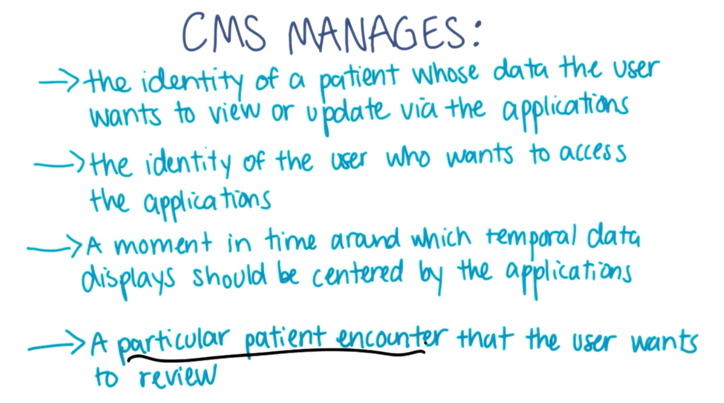 CMS MANAGES:
→ the identity of a patient whose data the user
wants to view or update via the applications
→ the identity of the user who wants to access
the applications
→ A moment in time around which temporal data
displays should be centered by the applications
→ A particular patient encounter that the user wants
to review